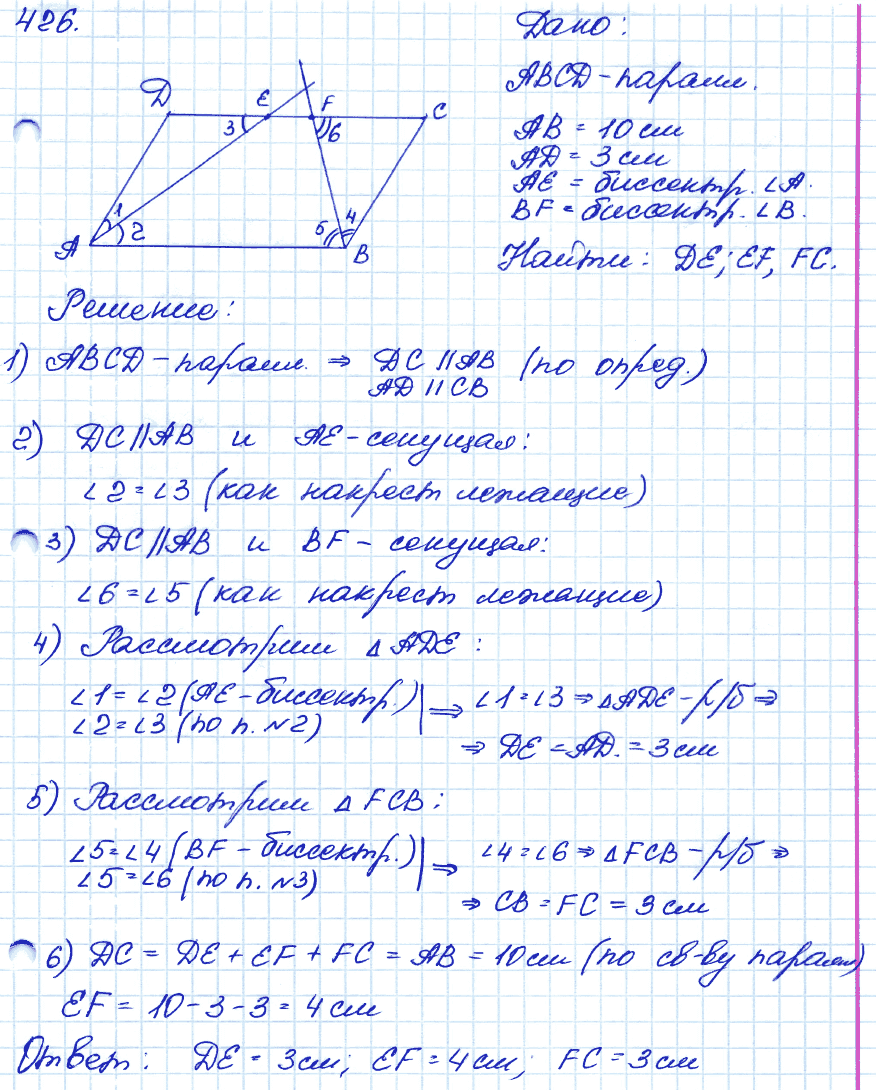 426.
Дано:
ABCD - парал.
AB = 10 см
AD = 3 см
AE = биссектр. ∠A.
BF = биссектр. ∠B.
Найти: DE; EF, FC.
D E F C
3 6
1 2 5 4
A B
Решение:
1) ABCD - парал. ⇒ DC || AB (по опред.)
AD || CB
2) DC || AB и AE - секущая:
∠2 = ∠3 (как накрест лежащие)
3) DC || AB и BF - секущая:
∠6 = ∠5 (как накрест лежащие)
4) Рассмотрим △ADE:
∠1 = ∠2 (AE - биссектр.) | ⇒ ∠1 = ∠3 ⇒ △ADE - р/б ⇒
∠2 = ∠3 (по п. №2)
⇒ DE = AD. = 3 см
5) Рассмотрим △FCB:
∠5 = ∠4 (BF - биссектр.) | ⇒ ∠4 = ∠6 ⇒ △FCB - р/б ⇒
∠5 = ∠6 (по п. №3)
⇒ CB = FC = 3 см
6) DC = DE + EF + FC = AB = 10 см (по св-ву парал.)
EF = 10 - 3 - 3 = 4 см
Ответ: DE = 3 см; EF = 4 см; FC = 3 см